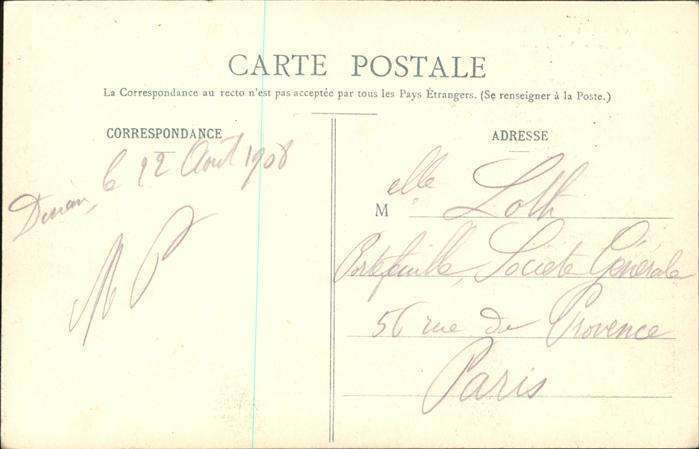 CARTE POSTALE
La Correspondance au recto n'est pas acceptée par tous les Pays Étrangers. (Se renseigner à la Poste.)
CORRESPONDANCE
Dinan, le 22 Août 1908
M P
ADRESSE
Melle Loth
Portefeuille, Société Générale
56 rue de Provence
Paris